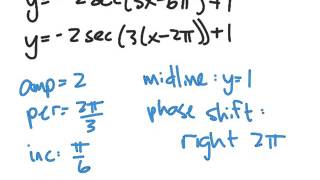 y=-2sec(3x-6π)+1
y=-2sec(3(x-2π))+1
amp=2
per=2π/3
inc: π/6
midline: y=1
phase shift:
right 2π